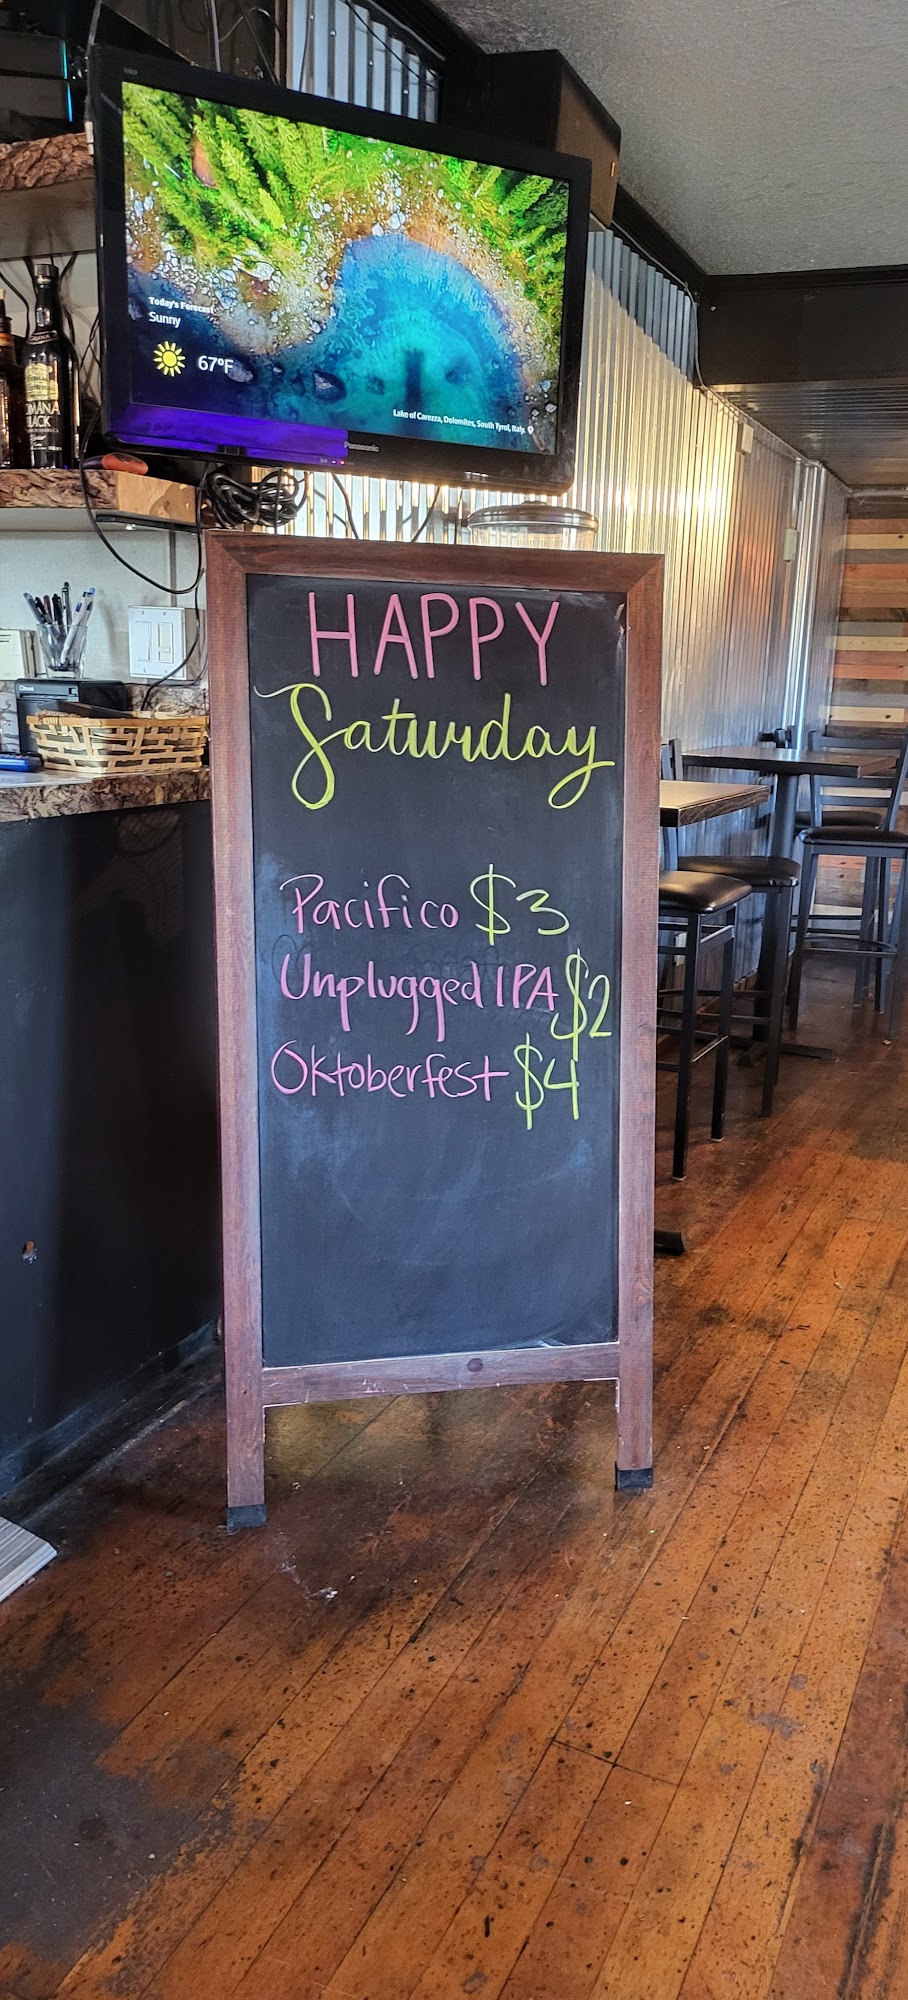 Today's Forecast
Sunny
67°F
Lake of Carezza, Dolomites, South Tyrol, Italy.
Panasonic
HAPPY
Saturday
Pacifico $3
Unplugged IPA $2
Oktoberfest $4